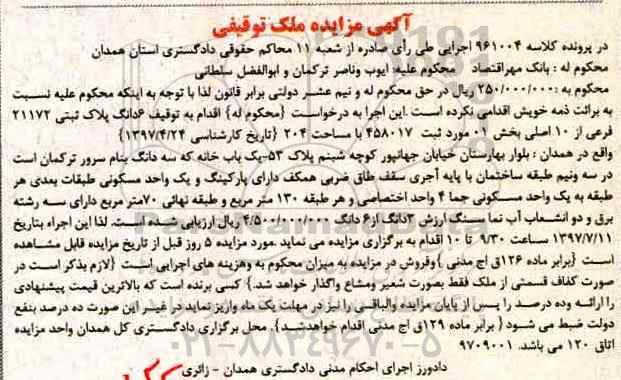 آگهی مزایده ملک توقیفی
در پرونده کلاسه ۹۶۱۰۰۴ اجرایی طی رأی صادره از شعبه ۱۱ محاکم حقوقی دادگستری استان همدان
محکوم له : بانک مهراقتصاد محکوم علیه: ایوب وناصر ترکمان و ابوالفضل سلطانی
محکوم به :۲۵۰/۰۰۰/۰۰۰ ریال در حق محکوم له و نیم عشر دولتی برابر قانون لذا با توجه به اینکه محکوم علیه نسبت
به برائت ذمه خویش اقدامی نکرده است .این اجرا به درخواست {محکوم له} اقدام به توقیف ۶دانگ پلاک ثبتی ۲۱۱۷۲
فرعی از ۱۰ اصلی بخش ۰۱ مورد ثبت ۴۵۸۰۱۷ با مساحت ۲۰۴ {تاریخ کارشناسی ۱۳۹۷/۴/۲۴}
واقع در همدان : بلوار بهارستان خیابان جهانپور کوچه شبنم پلاک ۵۳-یک باب خانه که سه دانگ بنام سرور ترکمان است
در سه ونیم طبقه ساختمان با پایه آجری سقف طاق ضربی همکف دارای پارکینگ و یک واحد مسکونی طبقات بعدی هر
طبقه به یک واحد مسکونی جما ۴ واحد اختصاصی و هر طبقه ۱۳۰ متر مربع و طبقه نهائی ۷۰متر مربع دارای سه رشته
برق و دو انشعاب آب نما سنگ ارزش ۳دانگ از۶ دانگ ۴/۵۰۰/۰۰۰/۰۰۰ ریال ارزیابی شده است. لذا این اجراء بتاریخ
۱۳۹۷/۷/۱۱ ساعت ۹/۳۰ تا ۱۰ اقدام به برگزاری مزایده می نماید .مورد مزایده ۵ روز قبل از تاریخ مزایده قابل مشاهده
است {برابر ماده ۱۲۶ق اج مدنی }وفروش در مزایده به میزان محکوم به وهزینه های اجرایی است {لازم بذکر است در
صورت کفاف قسمتی از ملک فقط بصورت شعیر ومشاع واگذار خواهد شد.} کسی برنده است که بالاترین قیمت پیشنهادی
را ارائه وده درصد را پس از پایان مزایده والباقی را نیز در مهلت یک ماه واریز نماید در غیر این صورت ده درصد بنفع
دولت ضبط می شود { برابر ماده ۱۲۹ق اج مدنی اقدام خواهدشد}. محل برگزاری دادگستری کل همدان واحد مزایده
اتاق ۱۲۰ می باشد. ۹۷۰۹۰۰۱
دادورز اجرای احکام مدنی دادگستری همدان - زائری
۰۲۱-۸۸۳۴۹۶۷۰-۵